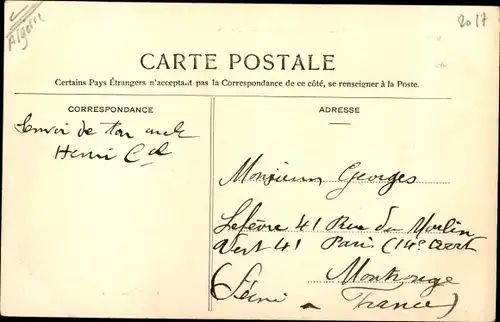 Algérie
2017
CARTE POSTALE
Certains Pays Étrangers n'acceptant pas la Correspondance de ce côté, se renseigner à la Poste.
CORRESPONDANCE
Envoi de ton oncle
Henri
ADRESSE
Monsieur Georges
Lefèvre 41 Rue du Moulin
Vert 41 Paris (14e arrt
Montrouge
(Seine - France)